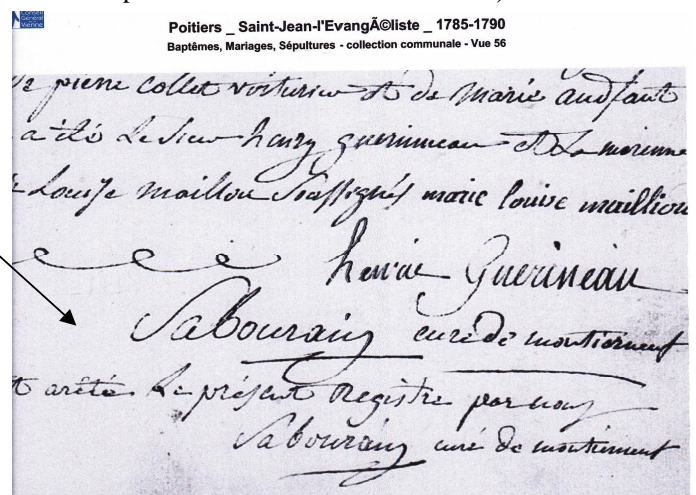 Conseil Général Vienne
Poitiers _ Saint-Jean-l'EvangÃ©liste _ 1785-1790
Baptêmes, Mariages, Sépultures - collection communale - Vue 56
pierre collet voiturier et de marie audfant
a été Le sieur henry guerinneau et La marienne
Louise maillou soussignés marie louise mailliou
henrie Guerineau
Sabourain curé de montierneuf
arêté Le présent Registre par nous
Sabourain curé de montierneuf